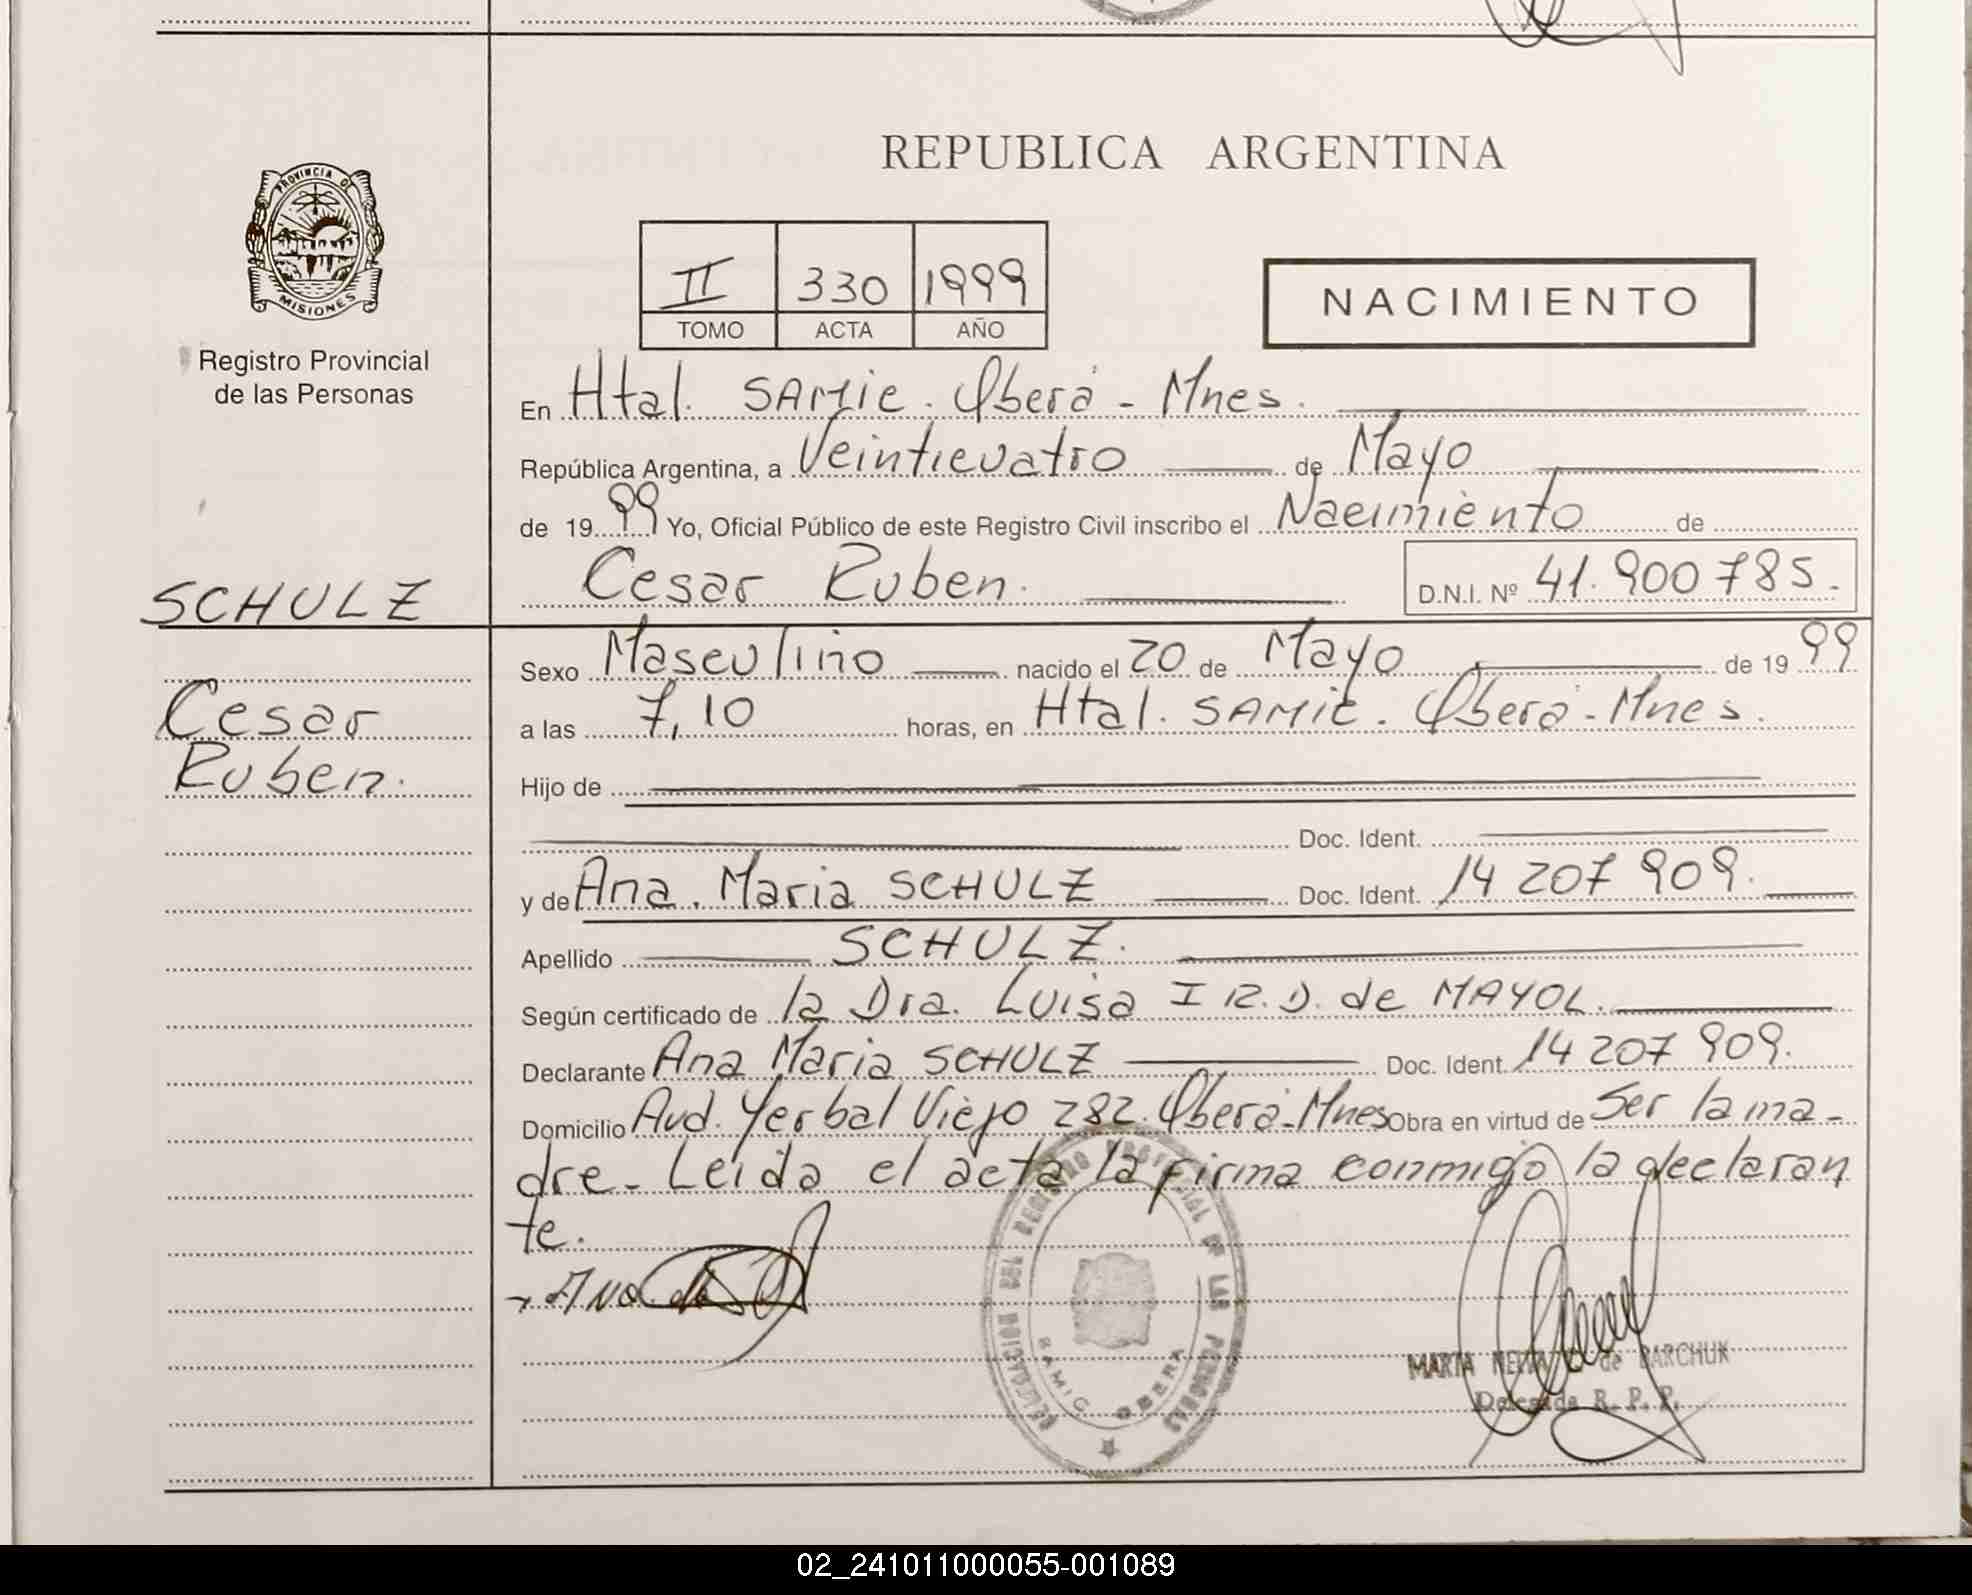 REPUBLICA ARGENTINA
PROVINCIA DE
MISIONES
Registro Provincial
de las Personas
II 330 1999
TOMO ACTA AÑO
NACIMIENTO
En Htal. SAMIC. Oberá - Mnes.
República Argentina, a Veinticuatro de Mayo
de 1999 Yo, Oficial Público de este Registro Civil inscribo el Nacimiento de
Cesar Ruben. D.N.I. Nº 41.900785.
SCHULZ
Cesar
Ruben.
Sexo Masculino nacido el 20 de Mayo de 1999
a las 7,10 horas, en Htal. SAMIC. Oberá - Mnes.
Hijo de
Doc. Ident.
y de Ana. Maria SCHULZ Doc. Ident. 14 207 909.
Apellido SCHULZ.
Según certificado de la Dra. Luisa I R.D. de MAYOL.
Declarante Ana Maria SCHULZ Doc. Ident. 14 207 909.
Domicilio Avd. Yerbal Viejo 282. Oberá - Mnes Obra en virtud de Ser la ma-
dre. Leida el acta la firma conmigo la declaran
te.
DELEGACION DEL REGISTRO PROVINCIAL DE LAS PERSONAS
SAMIC OBERA
MARTA de BARCHUK
Delegada R. P. P.
02_241011000055-001089